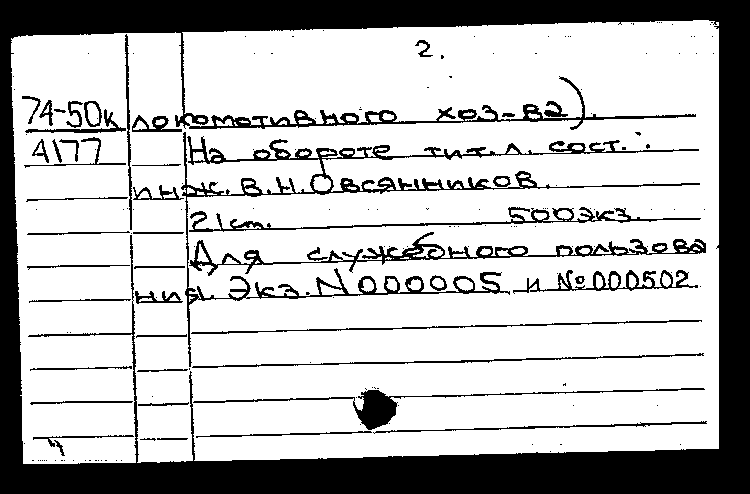 2.
74-50к локомотивного хоз-ва).
4177 На обороте тит. л. сост.:
инж. В.Н. Овсянников.
21 cm. 500 экз.
Для служебного пользова
ния. Экз. N000005 и №000502.